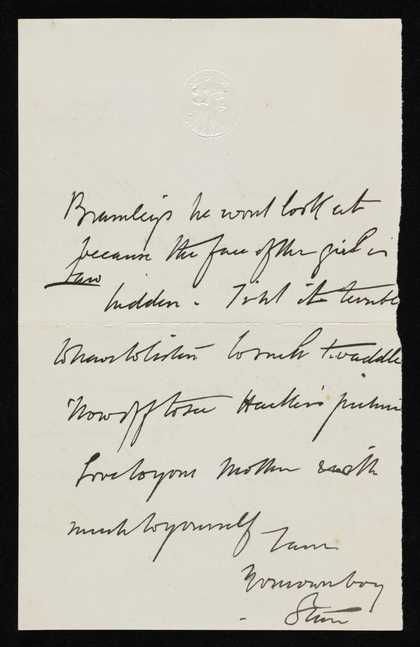 Bramleys he wont look at
because the face of the girl is
hidden - Isnt it terrible
to have to listen to such twaddle
Now off to see Hacker's picture
Love to your Mother with
much to yourself I am
Your own boy
Stan